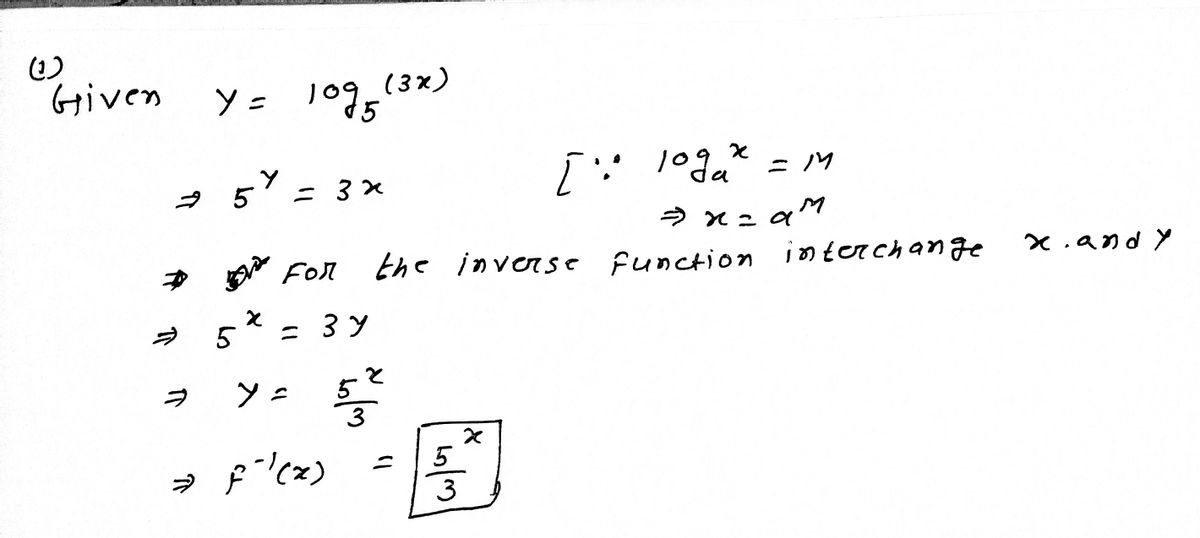 (1)
Given y = log₅(3x)
⇒ 5^y = 3x [∵ logₐ^x = M
⇒ x = a^M
⇒ For the inverse function interchange x.and y
⇒ 5^x = 3y
⇒ y = 5^x/3
⇒ f^-1(x) = 5^x/3